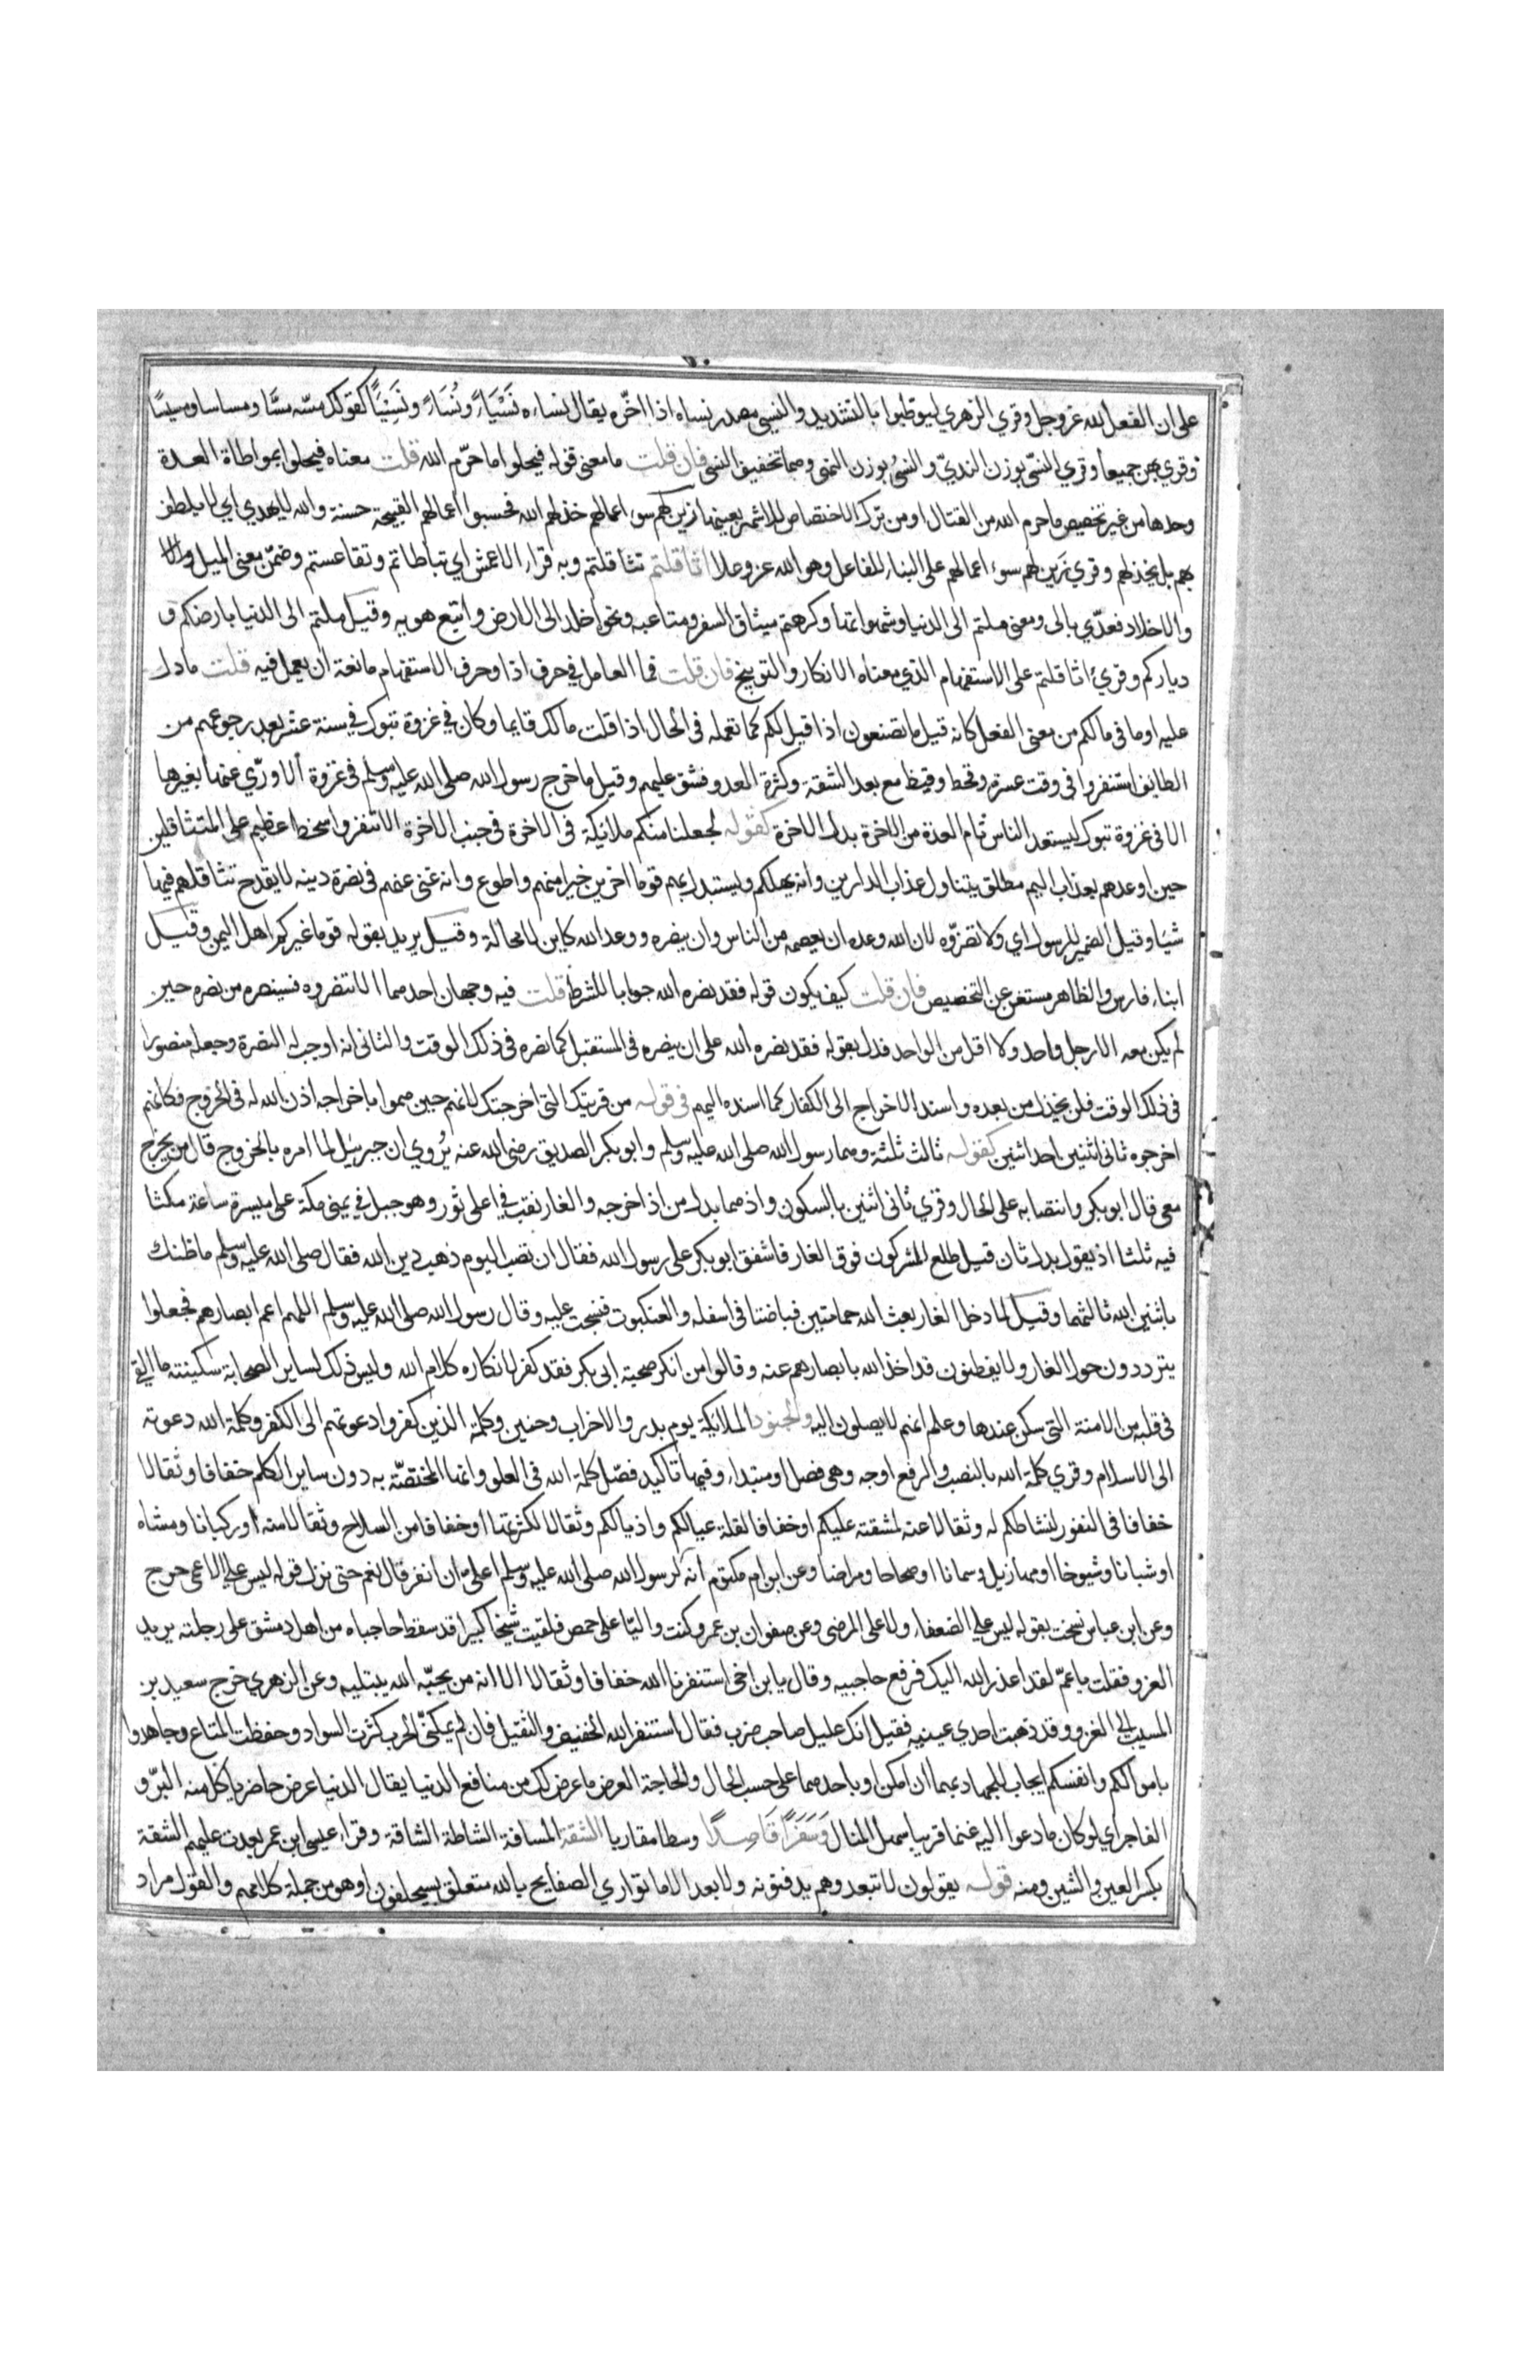 على ان الفعل لله عز وجل وقري الزهري ليوطيوا بالتشديد والنسئ مصدر نساه اذا اخّره يقال نساءه نَسْيًا ونُسَاءً ونَسِيئًا كقولك مسّه مسًّا ومساسا ومسيسًا
وقري بهن جميعا وقري النسّي بوزن النديّ والنسيُ بوزن النهي وهما تخفيف النسي فان قلت ما معنى قوله فيحلوا ما حرّم الله قلت معناه فيحلوا بمواطاة العدة
وحدها من غير تخصيص ما حرم الله من القتال او من ترك الاختصاص للاشهر بعينها زين لهم سوء اعمالهم خذلهم الله فحسبوا اعمالهم القبيحة حسنة والله لا يهدي اي لا يلطف
بهم بل يخذلهم وقري زَين لهم سوء اعمالهم على البناء للفاعل وهو الله عز وعلا اثاقلتم تثاقلتم وبه قراء الاعمش اي تباطاتم وتقاعستم وضمّن معنى الميل
والاخلاد فعدّي بالى ومعنى ملتم الى الدنيا وشهواتها وكرهتم مشاق السفر ومتاعبه ونحو اخلد الى الارض واتبع هويه وقيل ملتم الى الدنيا بارضكم و
دياركم وقريء اثاقلتم على الاستفهام الذي معناه الانكار والتوبيخ فان قلت فما العامل في حرف اذا وحرف الاستفهام مانعة ان يعمل فيه قلت ما دل
عليه او ما في مالكم من معنى الفعل كانه قيل ما تصنعون اذا قيل لكم كما تعمله فى الحال اذا قلت مالك قايما وكان في غزوة تبوك في سنة عشر بعد رجوعهم من
الطايف استنفروا فى وقت عسرة وقحط وقيظ مع بعد الشقة وكثرة العدو فشق عليهم وقيل ما خرج رسول الله صلى الله عليه وسلم فى غزوة الا ورّي عنها بغيرها
الا فى غزوة تبوك ليستعد الناس تمام العدة من الاخرة بدل الاخرة كقوله لجعلنا منكم ملائكة فى الاخرة فى جنب الاخرة الا تنفروا سخط عظيم على المتثاقلين
حين اوعدهم بعذاب اليم مطلق يتناول عذاب الدارين وانه يهلكم ويستبدل بهم قوما اخرين خيرا منهم واطوع وانه غنى عنهم فى نصرة دينه لا يقدح تثاقلهم فيها
شيا وقيل الضمير للرسول اي ولا تضرّوه لان الله وعده ان يعصمه من الناس وان ينصره ووعد الله كاين لا محالة وقيل يريد بقوله قوما غيركم اهل اليمن وقيل
ابناء فارس والظاهر مستغن عن التخصيص فان قلت كيف يكون قوله فقد نصره الله جوابا للشرط قلت فيه وجهان احدهما الا تنصروه فسينصره من نصره حين
لم يكن معه الا رجل واحد ولا اقل من الواحد فدل بقوله فقد نصره الله على ان ينصره فى المستقبل كما نصره فى ذلك الوقت والثانى انه اوجب له النصرة وجعله منصورا
فى ذلك الوقت فلن يخذل من بعده واسند الاخراج الى الكفار كما اسنده اليهم فى قوله من قريتك التى اخرجتك لانهم حين هموا باخراجه اذن الله له فى الخروج فكانهم
اخرجوه ثانى اثنين احد اثنين كقوله ثالث ثلثة وهما رسول الله صلى الله عليه وسلم وابو بكر الصديق رضى الله عنه يُروي ان جبرئيل لما امره بالخروج قال من يخرج
معى قال ابو بكر وانتصابه على الحال وقري ثانى اثنين بالسكون واذ هما بدل من اذ اخرجه والغار نقب في اعلى ثور وهو جبل في يمنى مكة على مسيرة ساعة مكثا
فيه ثلثا اذ يقول بدل ثان قيل طلع المشركون فوق الغار فاشفق ابو بكر على رسول الله فقال ان تصب اليوم ذهب دين الله فقال صلى الله عليه وسلم ما ظنك
باثنين الله ثالثهما وقيل لما دخل الغار بعث الله حمامتين فباضتا فى اسفله والعنكبوت فنسجت عليه وقال رسول الله صلى الله عليه وسلم اللهم اعم ابصارهم فجعلوا
يترددون حول الغار ولا يفطنون قد اخذ الله بابصارهم عنه وقالوا من انكر صحبة ابى بكر فقد كفر لانكاره كلام الله وليس ذلك لساير الصحابة سكينته ما القى
فى قلبه من الامنة التى سكن عندها وعلم انهم لا يصلون اليه والجنود الملائكة يوم بدر والاحزاب وحنين وكلمة الذين كفروا دعوتهم الى الكفر وكلمة الله دعوته
الى الاسلام وقري كلمة الله بالنصب والرفع اوجه وهى فصل او مبتداء وفيها تاكيد فضل كلمة الله فى العلو وانها المختصّة به دون ساير الكلم خفافا وثقالا
خفافا فى النفور لنشاطكم له وثقالا عنه لمشقته عليكم او خفافا لقلة عيالكم واذيالكم وثقالا لكثرتها او خفافا من السلاح وثقالا منه او ركبانا ومشاه
او شبانا وشيوخا او مهازيل وسمانا او صحاحا ومراضا وعن ابن ام مكتوم انه لرسول الله صلى الله عليه وسلم اعلى ان انفر قال نعم حتى نزل قوله ليس على الاعمى حرج
وعن ابن عباس نسخت بقوله ليس على الضعفاء ولا على المرضى وعن صفوان بن عمرو كنت واليًا على حمص فلقيت شيخا كبيرا قد سقط حاجباه من اهل دمشق على رحلته يريد
الغزو فقلت يا عمّ لقد اعذر الله اليك فرفع حاجبيه وقال يا بن اخى استنفرنا الله خفافا وثقالا الا انه من يحبّه الله يبتليه وعن الزهري خرج سعيد بن
المسيب الى الغزو وقد ذهبت احدي عينيه فقيل انك عليل صاحب ضرب فقال استنفر الله الخفيف والثقيل فان لم يمكنّى الحرب كثرت السواد وحفظت المتاع وجاهدوا
باموالكم وانفسكم ايجاب للجهاد بهما ان امكن او باحدهما على حسب الحال والحاجة العرض ما عرض لك من منافع الدنيا يقال الدنيا عرض حاضر ياكل منه البرّ و
الفاجر اي لو كان ما دعوا اليه غنما قريبا سهل المنال وَسَفَرًا قَاصِدًا وسطا مقاربا الشقة المسافة الشاطة الشاقة وقراء عيسى ابن عمر بعدت عليهم الشقة
بكسر العين والشين ومنه قوله يقولون لا تبعد وهم يدفنونه ولا بعد الا ما توارى الصفايح بالله متعلق بسيحلفون او هو من جملة كلامهم والقول مراد